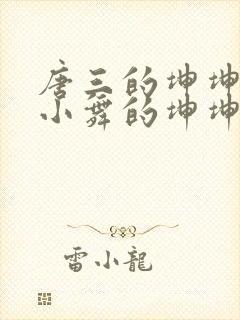 唐三的坤坤
小舞的坤坤
雷小龍